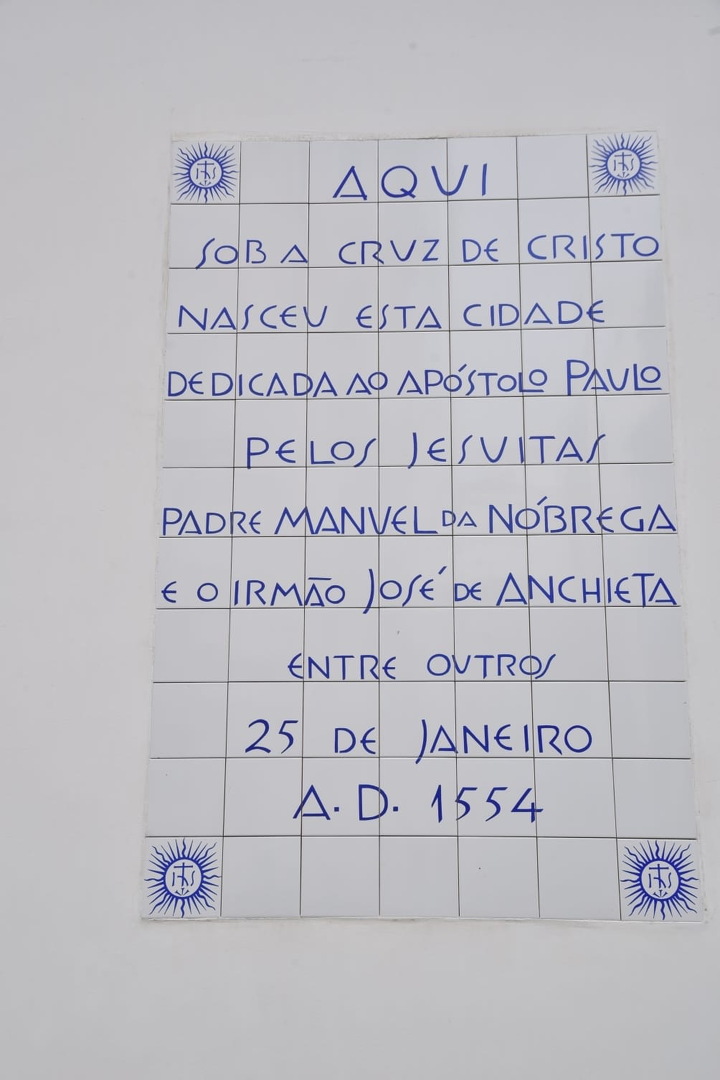 IHS IHS
AQUI
SOB A CRUZ DE CRISTO
NASCEU ESTA CIDADE
DEDICADA AO APÓSTOLO PAULO
PELOS JESUITAS
PADRE MANUEL DA NÓBREGA
E O IRMÃO JOSÉ DE ANCHIETA
ENTRE OUTROS
25 DE JANEIRO
A. D. 1554
IHS IHS